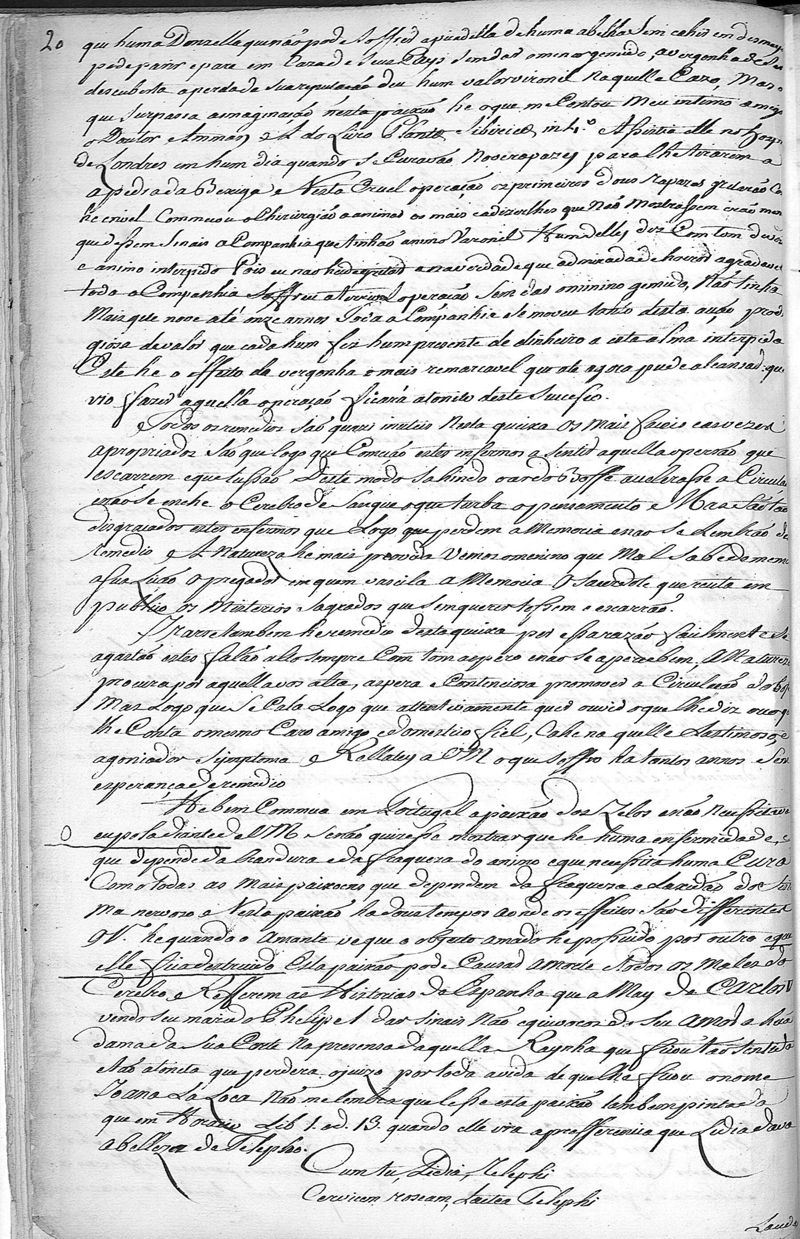 20
que huma Donzella que não pode soffrer a picadella de huma abelha sem cahir em desmayo
pode parir e pare em Caza de Seus Pays sem dar o minor gemido, a vergonha de Ser
descuberta a perda da Sua reputação deu hum valor vironil naquelle Cazo, Mas o
que surpassa a imaginação nesta paixão he o que me Contou Meu intimo amigo
o Doutor Amman, & A. do Livro Plantæ Sibiricæ, in 4.º Assistia elle no Hosp.
de Londres em hum dia quando se Curavão nove rapazes para lhe tirarem a
a pedra da Bexiga e Nesta Cruel operação os primeiros dous rapazes gritarão
he crivel Comessou o Chirurgião a animar os mais a dizerlhes que Não mostrassem
que dessem Sinais a Companhia que tinhão animo Varonil Hum delles diz Com tom
e animo intrepido Pois eu não hei de gritar e na verdade que admirada de horror
toda a Companhia Soffreu a operação Sem dar o minino gemido, Não tinha
Mais que nove até onze annos Toda a Companhia se moveu tanto desta acção prod
gioza de valor que cada hum fez hum prezente de dinheiro a esta alma intrepida
Este he o effeito da vergonha o mais remarcavel que até agora pude alcansar, que
vio fazer aquella operação ficará atonito deste Sucesso.
Todos os remedios São quazi inuteis Nesta queixa os mais faceis e as vezes
apropriados São que logo que Comessão estes infermos a Sentir aquella opersão que
escarrem e que tussão Deste modo Sahindo o ar do Boffe accelerasse a Circula
e não Se enche o Cerebro de Sangue o que turba o pensamento e Mas São tão
desgraciados estes enfermos que Logo que perdem a Memoria e não Se Lembrão do
remedio e A Natureza he mais provida Vemos o menino que Mal Sabe de memoria
a Sua Lição o pregador em quem vacila a Memoria O Sacerdote que recita em
publico os Misterios Sagrados que Sem querer tossem e escarrão.
Irarse tambem he remedio desta queixa por essa razão facilmente se
agastão estes falão alto sempre Com tom aspero e não se apercebem, A Natureza
procura por aquella vos alta, aspera e Contencioza promover a Circulação do Boffe
Mas Logo que Se Cala Logo que attentivamente quer ouvir o que lhe diz ou o q
lhe Conta o mesmo Caro amigo e domestico fiel, Cahe naquelle Lastimoso, e
agoniador Symptoma e Rellatey a VM o que Soffro ha tantos annos Sem
esperança de remedio
He bem Commua em Portugal a paixão dos Zelos e não Necessitava
eu pola diante de VM Senão quizesse mostrar que he huma enfermidade, e
que depende da brandura e da fraqueza do animo e que necessita huma Cura
Como todas as Mais paixoens que dependem da fraqueza e Laxidão do Sis
ma nervozo e Nesta paixão ha dous tempos aonde os effeitos São differentes
he quando o Amante ve que o objecto amado he possuido por outro e que
elle fica destruido Esta paixão pode Cauzar a morte e todos os males do
Cerebro, e Refferem as Historias da Espanha que a May de Carlos V
vendo seu marido Phelipe I. dar Sinais Não equivocos do Seu amor a huã
dama da Sua Corte na prezensa daquella Raynha que ficou tão Sentida
e tão atonita que perdera o juizo por toda a vida de que lhe ficou o nome
Joana La Loca Não me lembra que lesse esta paixão tambem pintada
que em Horacio Lib 1. od. 13. quando elle via a prefferencia que Lidia dava
a belleza de Telepho.
Cum tu, Lidia, Telephi
Cervicem roseam, Lactea Telephi
Lauda